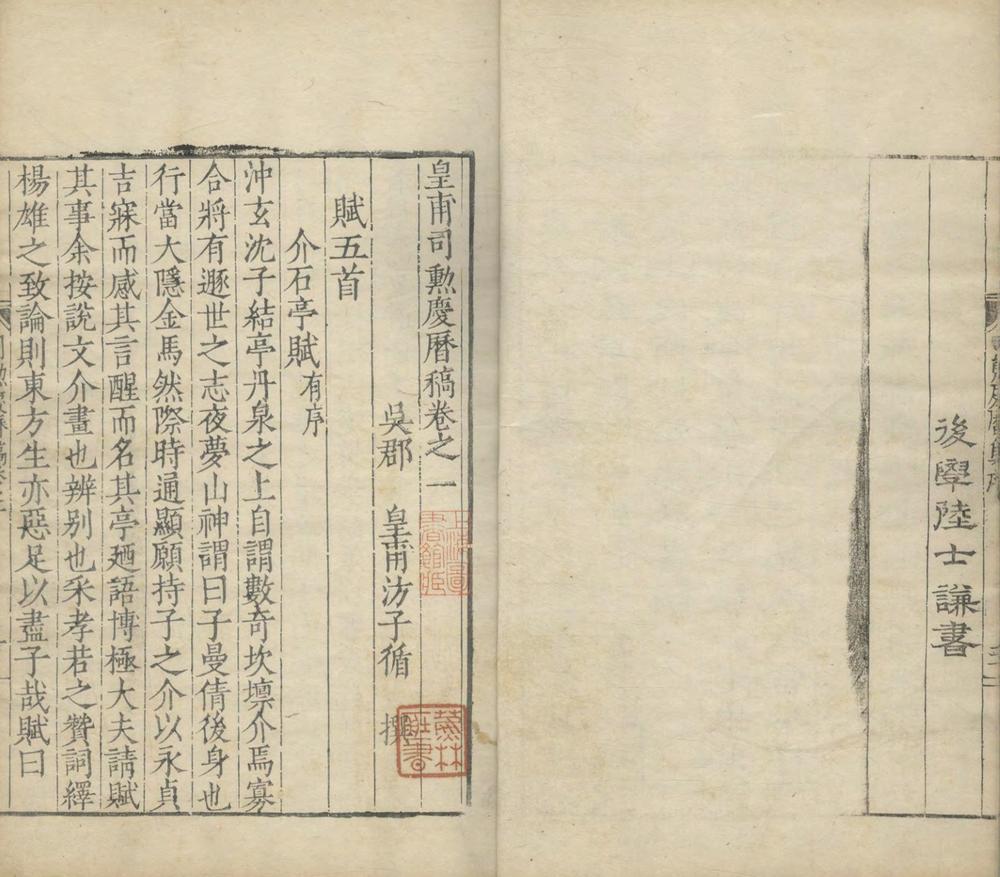 後學陸士謙書
皇甫司勲慶曆稿卷之一
吳郡 皇甫汸子循 撰
賦五首
介石亭賦有序
沖玄沈子結亭丹泉之上自謂數奇坎壈介焉寡
合將有遯世之志夜夢山神謂曰子曼倩後身也
行當大隱金馬然際時通顯願持子之介以永貞
吉寐而感其言醒而名其亭廼語博極大夫請賦
其事余按說文介畫也辨别也釆孝若之贊詞繹
楊雄之致論則東方生亦惡足以盡子哉賦曰